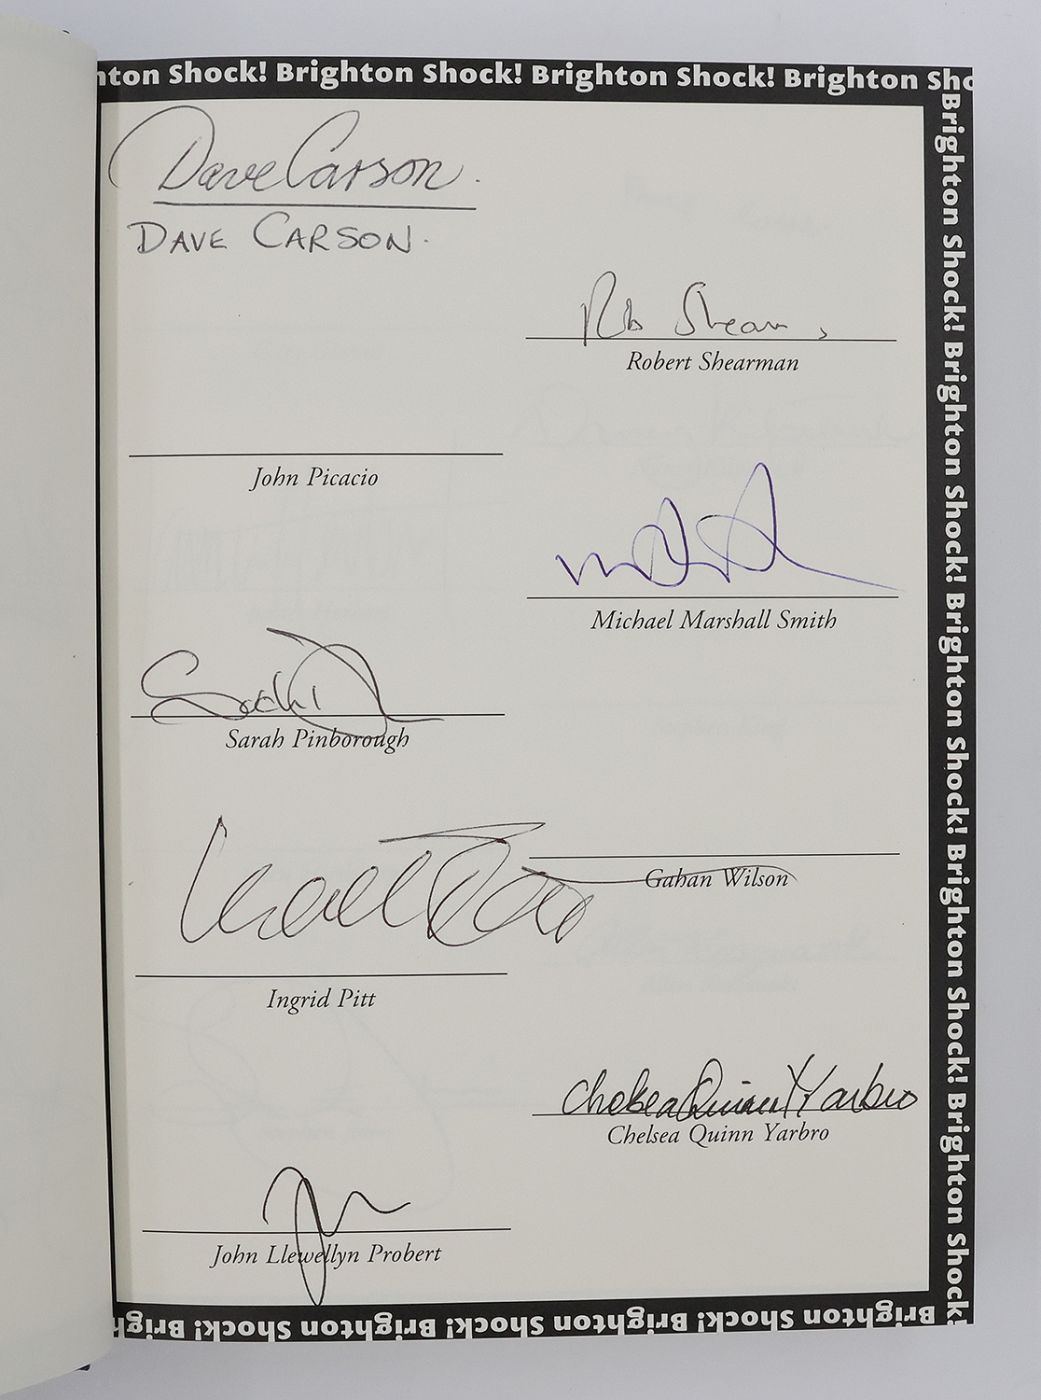 hton Shock! Brighton Shock! Brighton Shock! Brighton Sho
Brighton Shock! Brighton Shock! Brighton Shock! Brighton Shock! Brighton Shock!
Dave Carson.
DAVE CARSON.
Rob Shearman
Robert Shearman
John Picacio
Michael Marshall Smith
Sarah Pinborough
Gahan Wilson
Ingrid Pitt
Chelsea Quinn Yarbro
Chelsea Quinn Yarbro
John Llewellyn Probert
Brighton Shock! Brighton Shock! Brighton Shock! Brigh